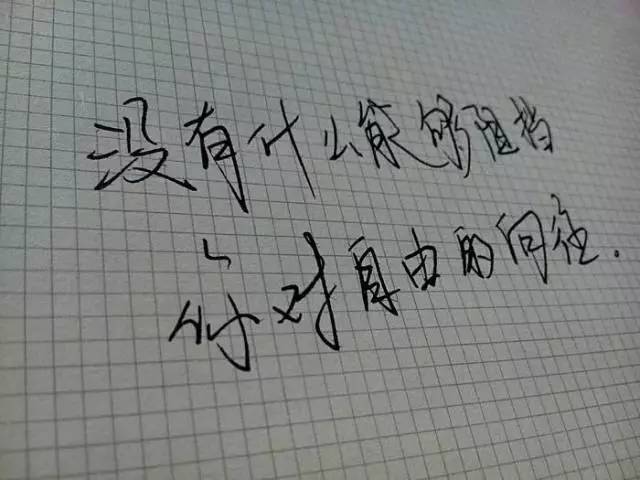 没有什么能够阻挡
你对自由的向往.